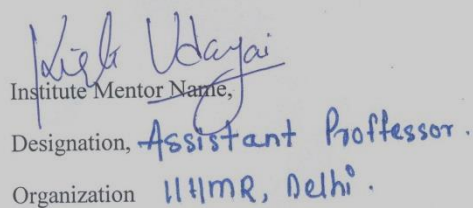 Udayai
Institute Mentor Name,
Designation, Assistant Proffessor.
Organization IIHMR, Delhi.